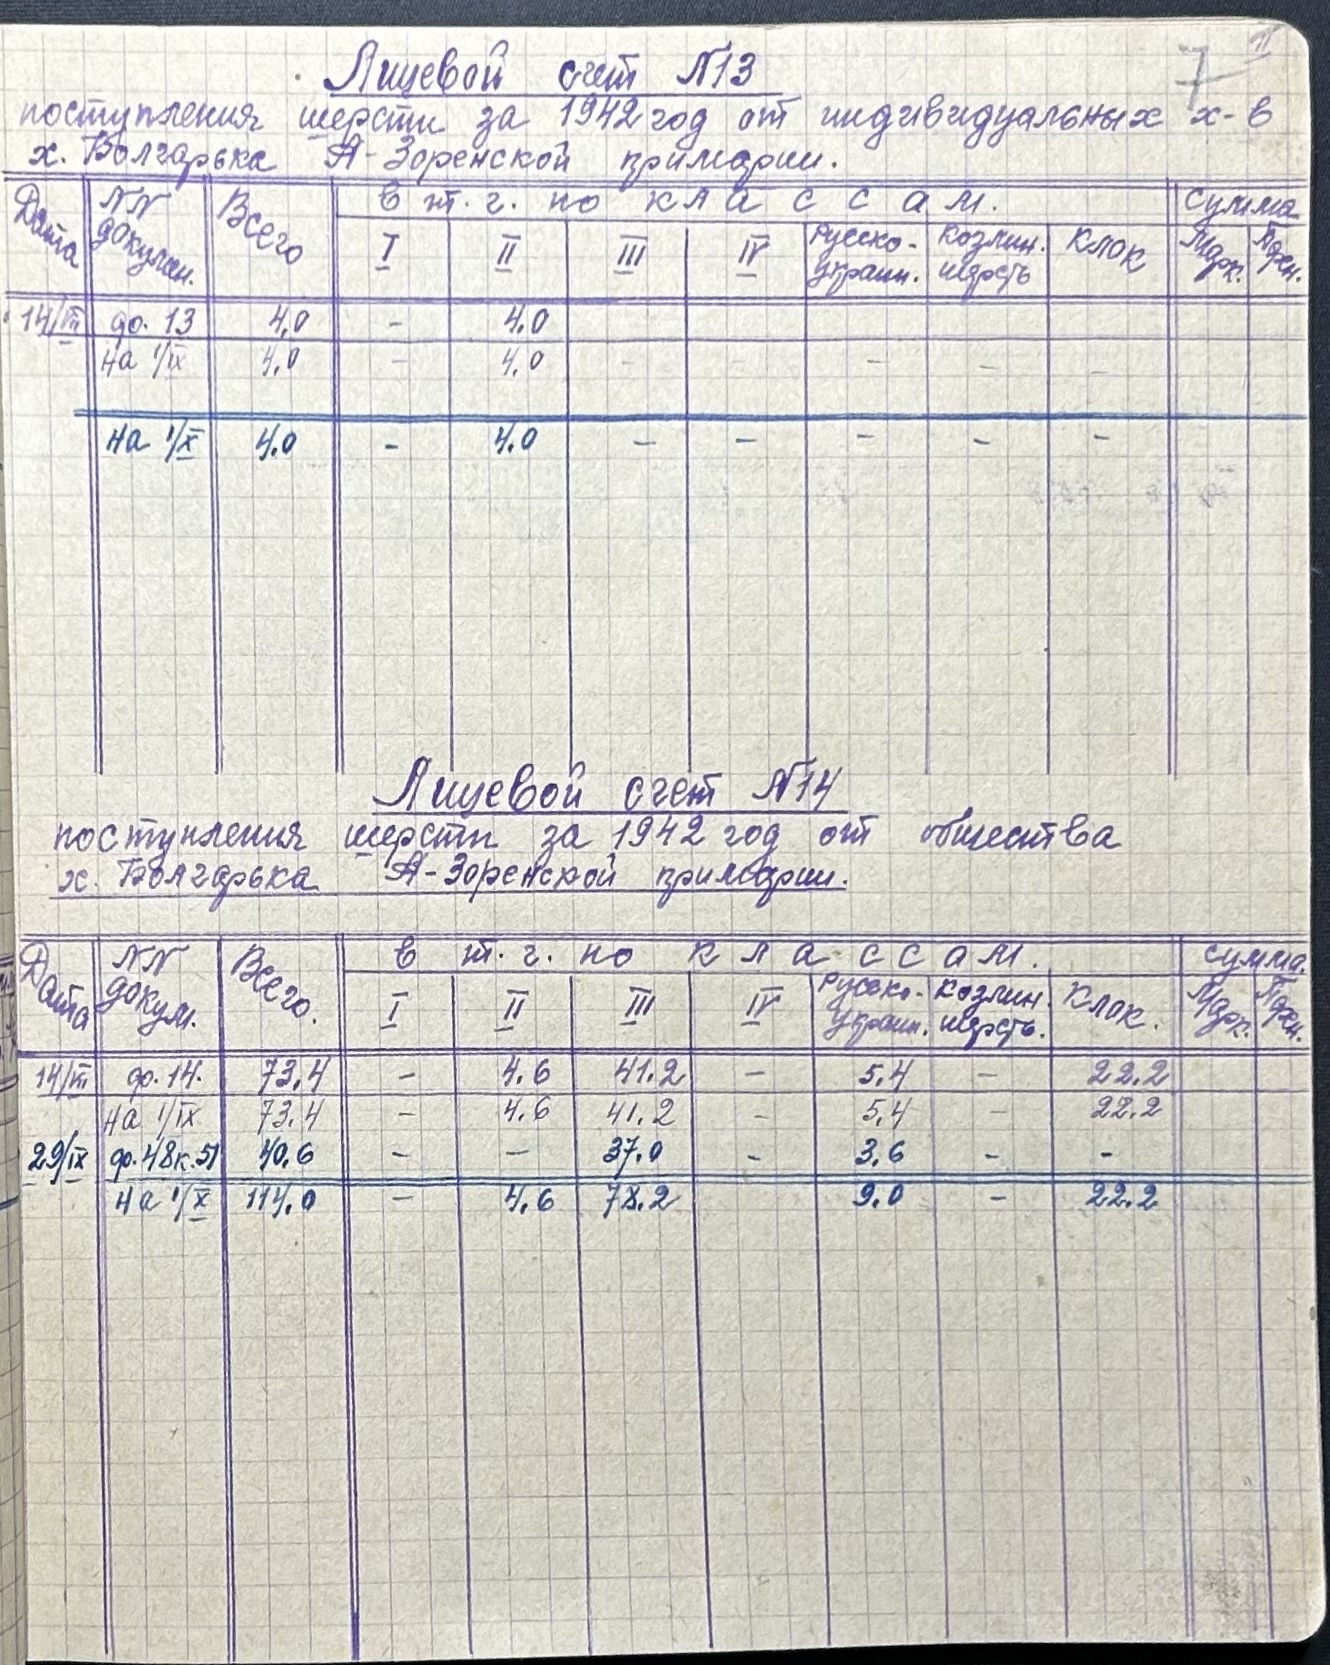 7
Лицевой счет №13
поступления шерсти за 1942 год от индивидуальных х-в
х. Болгарька А-Зоренской примарии.
Дата NN докумен. Всего в т.г. по классам. Сумма
I II III IV Русско-украин. Козлин. шерсть Клок Марк. Пфен.
14/III ф. 13 4,0 - 4.0
на 1/IX 4,0 - 4,0 - - - - -
на 1/X 4.0 - 4.0 - - - - -
Лицевой счет №14
поступления шерсти за 1942 год от общества
х. Болгарька А-Зоренской примарии.
Дата NN докум. Всего. в т.г. по классам. Сумма.
I II III IV Русско-украин. Козлин. шерсть. Клок. Марк. Пфен.
14/III ф. 14. 73,4 - 4.6 41.2 - 5,4 - 22.2
на 1/IX 73.4 - 4.6 41.2 - 5,4 - 22.2
29/IX ф. 48к.51 40.6 - - 37.0 - 3.6 - -
на 1/X 114.0 - 4.6 78.2 9.0 - 22.2